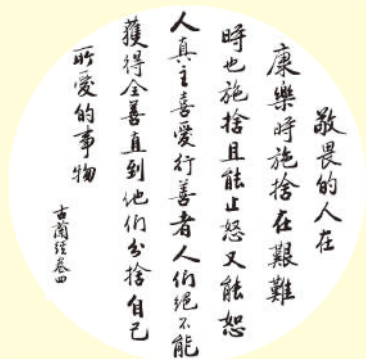 敬畏的人在
康樂時施捨在艱難
時也施捨且能止怒又能恕
人真主喜愛行善者人们絕不能
獲得全善直到他们分捨自己
所愛的事物
古蘭經卷四